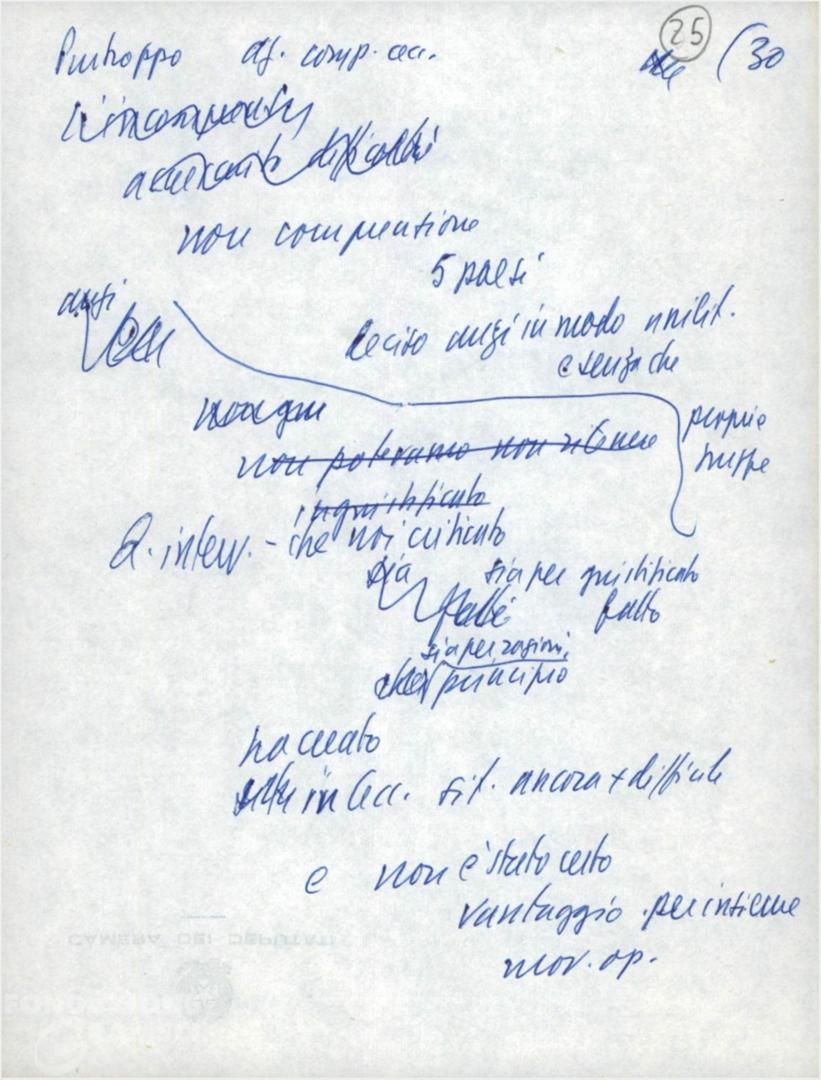 25
(30
Purtroppo dif. comp. cec.
L'incomprensione
accresciuto difficoltà
non comprensione
5 paesi
anzi
deciso anzi in modo unilit.
e senza che
non potevamo non ritenere
proprie
truppe
ingiustificato
Q. interv. - che noi criticato
sia
sia per giustificato
fatto
sia per ragioni
principio
ha creato
in Cec. sit. ancora + difficile
e non è stato certo
vantaggio per insieme
mov. op.
CAMERA DEI DEPUTATI